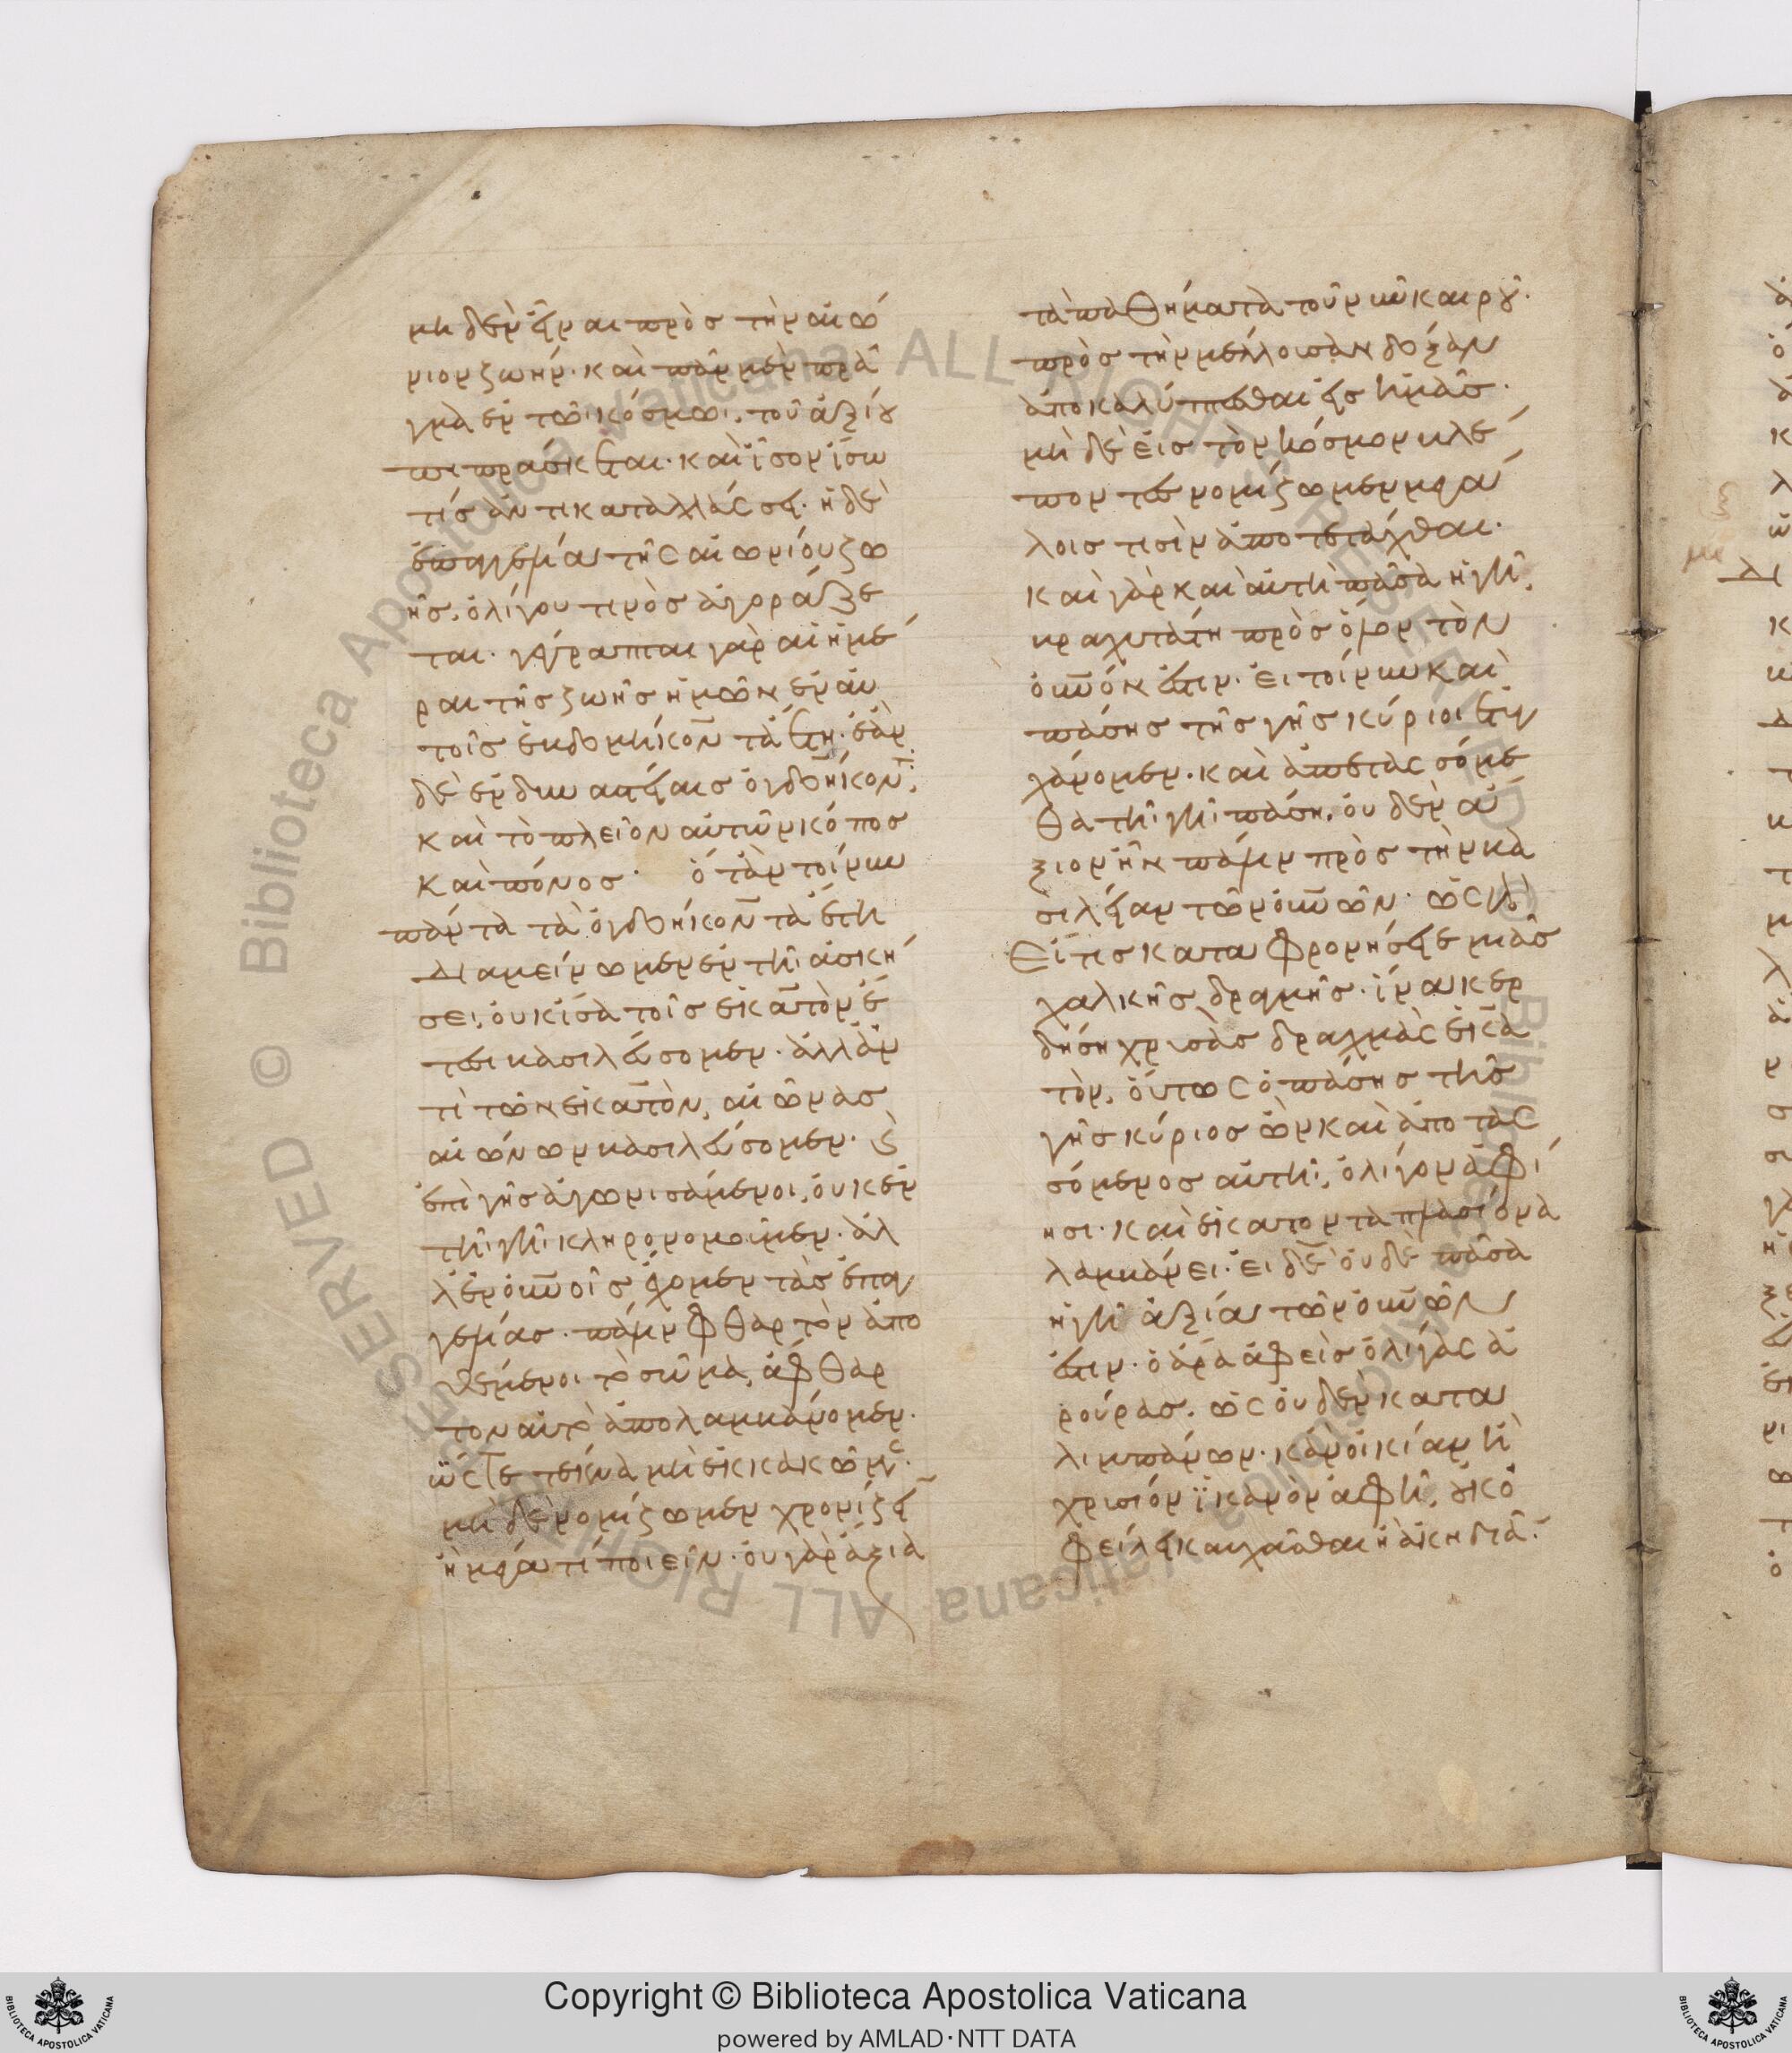 μηδὲν εἶναι πρὸς τὴν αἰώ
νιον ζωήν. καὶ πᾶν μὲν πρᾶ
γμα ἐν τῶι κόσμωι, τοῦ ἀξίου
πιπράσκεται. καὶ ἴσον ἴσω
τίς ἀντικαταλλάσσει. ἡ δὲ
ἐπαγγελία τῆς αἰωνίου ζω
ῆς, ὀλίγου τινὸς ἀγοράζε
ται. γέγραπται γὰρ αἱ ἡμέ
ραι τῆς ζωῆς ἡμῶν ἐν αὐ
τοῖς ἑβδομήκοντα ἔτη. ἐὰν
δὲ ἐν δυναστείαις ὀγδοήκοντ.
καὶ τὸ πλεῖον αὐτῶν κόπος
καὶ πόνος. ὅταν τοίνυν
πάντα τὰ ὀγδοήκοντα ἔτη
διαμείνωμεν ἐν τῆι ἀσκή
σει, οὐκ ἴσα τοῖς ἑκατὸν ἔ
τεσι βασιλεύσομεν. ἀλλ' ἀν
τὶ τῶν ἑκατὸν, αἰῶνας
αἰώνων βασιλεύσομεν. καὶ
ἐπὶ γῆς ἀγωνισάμενοι, οὐκ ἐν
τῆι γῆι κληρονομοῦμεν. ἀλ
λ' ἐν οὐνοῖς ἔχομεν τὰς ἐπαγ
γελίας. πάλιν φθαρτὸν ἀπο
θέμενοι τὸ σῶμα, ἄφθαρ
τον αὐτὸ ἀπολαμβάνομεν.
ὥστε τέκνα μὴ ἐκκακῶμεν.
μὴ δὲ νομίζωμεν χρονίζειν
ἢ μέγα τί ποιεῖν. οὐ γὰρ ἄξια
τὰ παθήματα τοῦ νῦν καιροῦ.
πρὸς τὴν μέλλουσαν δόξαν
ἀποκαλύπτεσθαι εἰς ἡμᾶς.
μὴ δὲ εἰς τὸν κόσμον βλέ
ποντες νομίζωμεν μεγά
λοις τισὶν ἀποτετάχθαι.
καὶ γὰρ καὶ αὐτὴ πᾶσα ἡ γῆ,
βραχυτάτη πρὸς ὅλον τὸν
οὐνόν ἐστιν. εἰ τοίνυν καὶ
πάσης τῆς γῆς κύριοι ἐτυγ
χάνομεν. καὶ ἀπετασσόμε
θα τῆι γῆι πάση, οὐδὲν ἄ
ξιον ἦν πάλιν πρὸς τὴν βα
σιλείαν τῶν οὐνῶν. ὡς γὰρ
εἴ τις καταφρονήσειε μιᾶς
χαλκῆς δραχμῆς. ἵνα κερ
δήση χρυσὰς δραχμὰς ἑκα
τὸν, οὕτως ὁ πάσης τῆς
γῆς κύριος ὢν καὶ ἀποτας
σόμενος αὐτῆι, ὀλίγον ἀφί
ησι. καὶ ἑκατονταπλασίονα
λαμβάνει. εἰ δὲ οὐδὲ πᾶσα
ἡ γῆ ἀξία τῶν οὐνῶν
ἐστιν. ὁ ἄρα ἀφεὶς ὀλίγας ἀ
ρούρας, ὡς οὐδὲν κατα
λιμπάνων. κἂν οἰκίαν ἢ
χρυσίον ἱκανὸν ἀφῆ, οὐκ ὀ
φείλει καυχᾶσθαι ἢ ἀκηδιᾶ.